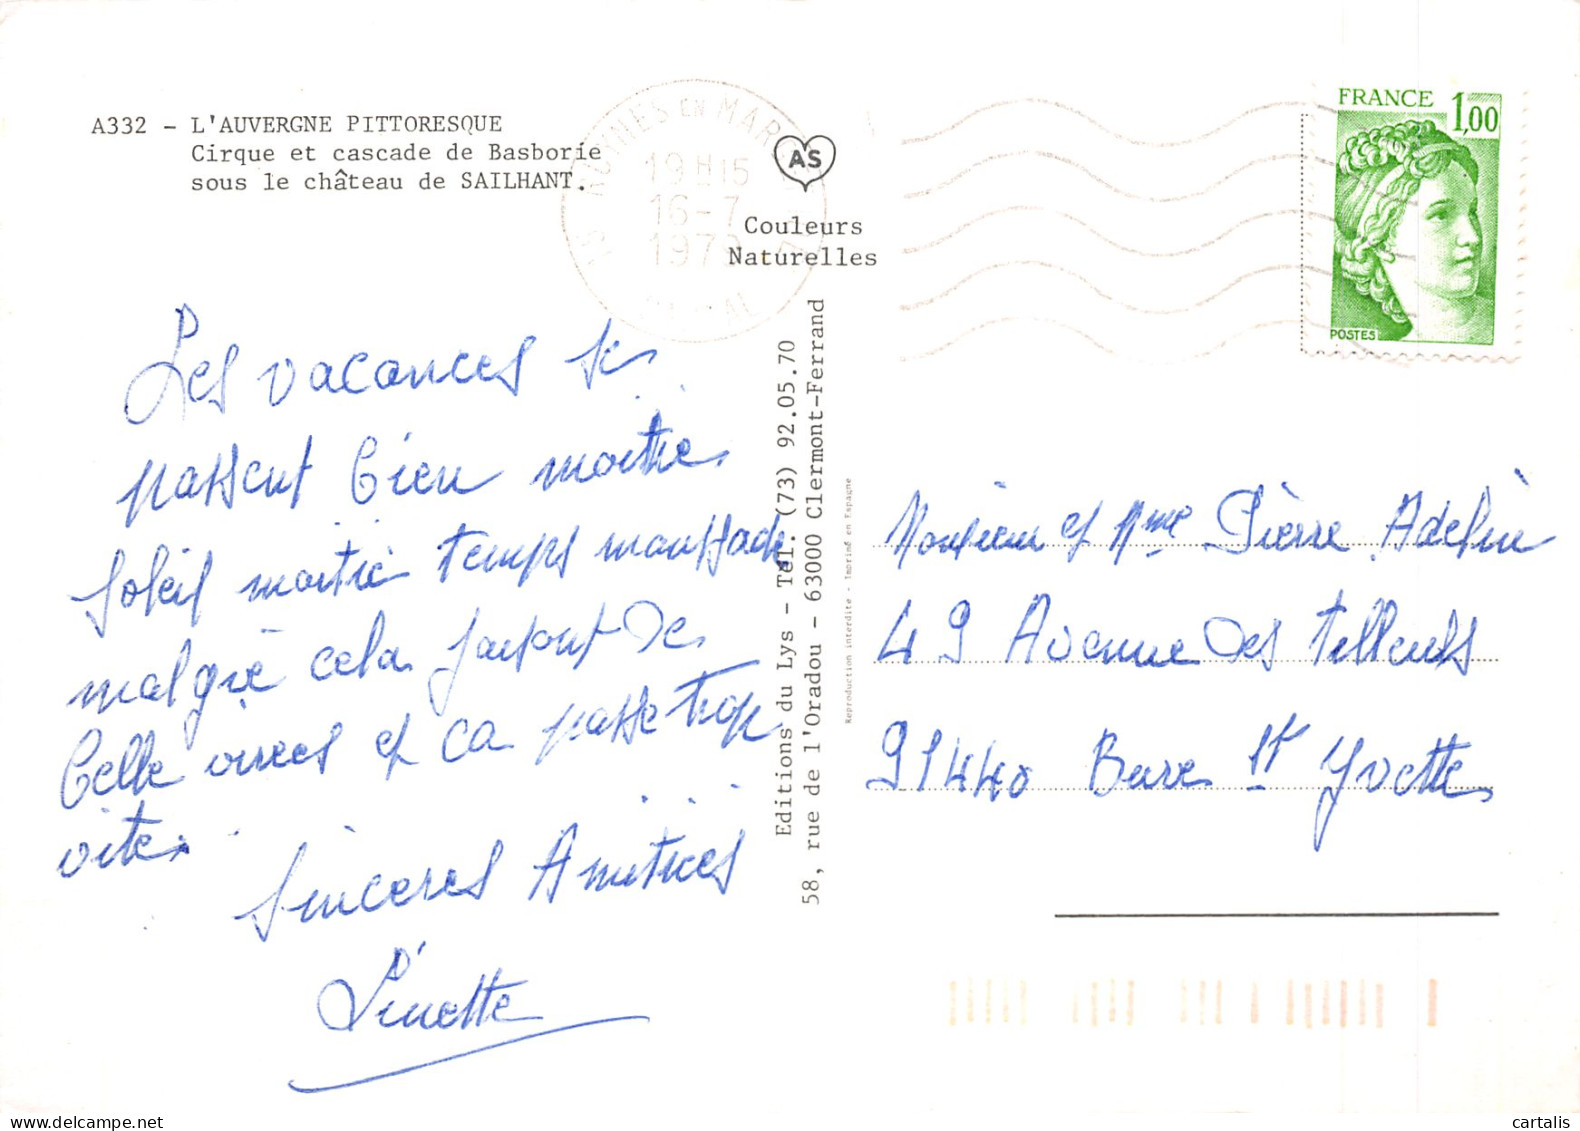 A332 - L'AUVERGNE PITTORESQUE
Cirque et cascade de Basborie
sous le château de SAILHANT.
19H15
16-7
1979
AS
Couleurs
Naturelles
FRANCE 1,00
POSTES
Les vacances se
passent bien moitie
soleil moitié temps maussade
malgré cela faisont de
belle virees et ca passe trop
vite.
Sinceres Amitiées
Linette
Editions du Lys - Tél. (73) 92.05.70
58, rue de l'Oradou - 63000 Clermont-Ferrand
Reproduction interdite - Imprimé en Espagne
Monsieur et Mme Pierre Adeline
49 Avenue des Tilleuls
91440 Bures St Yvette
cartalis